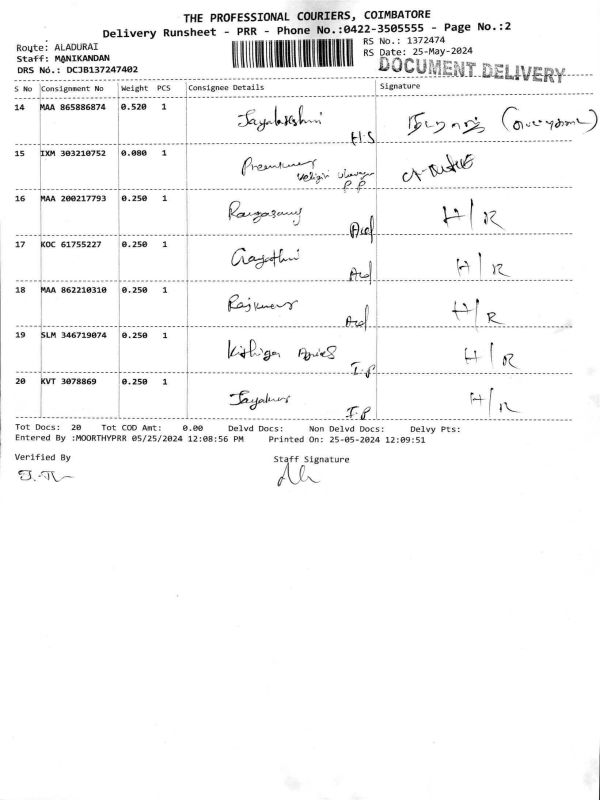 THE PROFESSIONAL COURIERS, COIMBATORE
Delivery Runsheet - PRR - Phone No.:0422-3505555 - Page No.:2
Route: ALADURAI
RS No.: 1372474
Staff: MANIKANDAN
RS Date: 25-May-2024
DRS No.: DCJB137247402
DOCUMENT DELIVERY
S No Consignment No Weight PCS Consignee Details Signature
14 MAA 865886874 0.520 1 Jayalakshmi H.S
15 IXM 303210752 0.080 1 Premkumar P.P
16 MAA 200217793 0.250 1 Rangasamy H/R
17 KOC 61755227 0.250 1 Gayathri H/R
18 MAA 862210310 0.250 1 Rajkumar H/R
19 SLM 346719074 0.250 1 I.P H/R
20 KVT 3078869 0.250 1 I.P H/R
Tot Docs: 20 Tot COD Amt: 0.00 Delvd Docs: Non Delvd Docs: Delvy Pts:
Entered By :MOORTHYPRR 05/25/2024 12:08:56 PM Printed On: 25-05-2024 12:09:51
Verified By Staff Signature